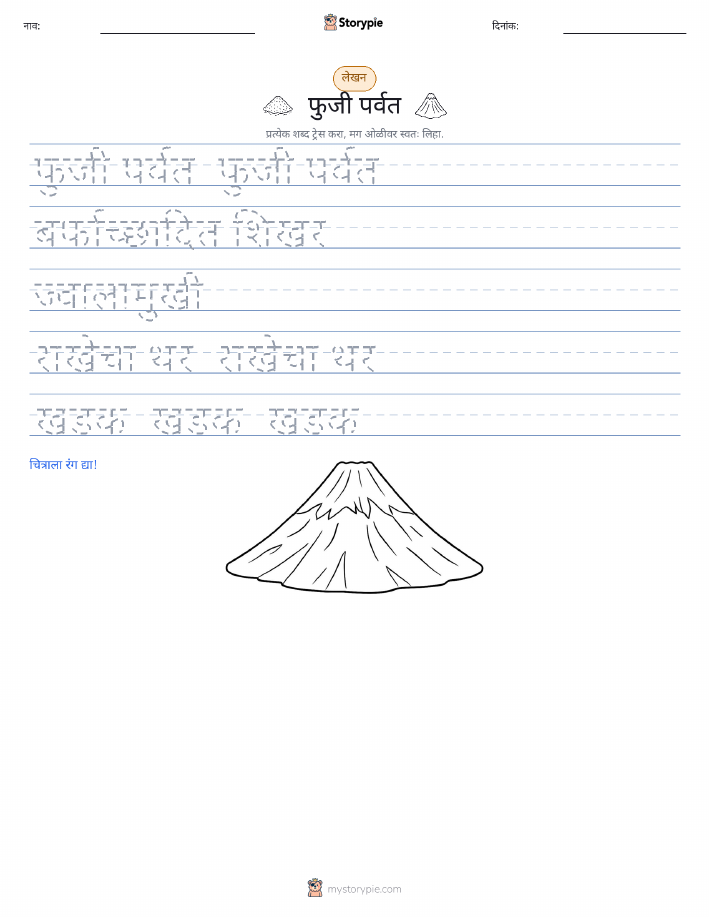 नाव: Storypie दिनांक:
लेखन
फुजी पर्वत
प्रत्येक शब्द ट्रेस करा, मग ओळीवर स्वतः लिहा.
फुजी पर्वत फुजी पर्वत
बर्फाच्छादित शिखर
ज्वालामुखी
राखेचा थर राखेचा थर
खडक खडक खडक
चित्राला रंग द्या!
mystorypie.com